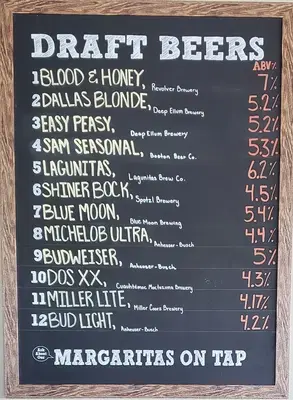 DRAFT BEERS
ABV%
1 BLOOD & HONEY, Revolver Brewery 7%
2 DALLAS BLONDE, Deep Ellum Brewery 5.2%
3 EASY PEASY, Deep Ellum Brewery 5.2%
4 SAM SEASONAL, Boston Beer Co. 5.3%
5 LAGUNITAS, Lagunitas Brew Co. 6.2%
6 SHINER BOCK, Spotzl Brewery 4.5%
7 BLUE MOON, Blue Moon Brewing 5.4%
8 MICHELOB ULTRA, Anheuser-Busch 4.4%
9 BUDWEISER, Anheuser-Busch 5%
10 DOS XX, Cuauhtémoc Moctezuma Brewery 4.3%
11 MILLER LITE, Miller Coors Brewery 4.17%
12 BUD LIGHT, Anheuser-Busch 4.2%
Ask About Our
MARGARITAS ON TAP